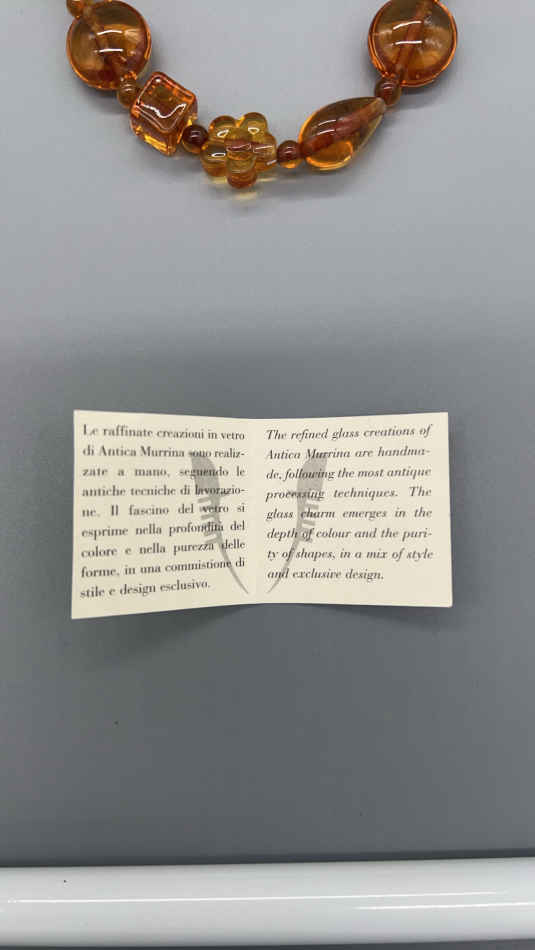 Le raffinate creazioni in vetro
di Antica Murrina sono realiz-
zate a mano, seguendo le
antiche tecniche di lavorazio-
ne. Il fascino del vetro si
esprime nella profondità del
colore e nella purezza delle
forme, in una commistione di
stile e design esclusivo.
The refined glass creations of
Antica Murrina are handma-
de, following the most antique
processing techniques. The
glass charm emerges in the
depth of colour and the puri-
ty of shapes, in a mix of style
and exclusive design.